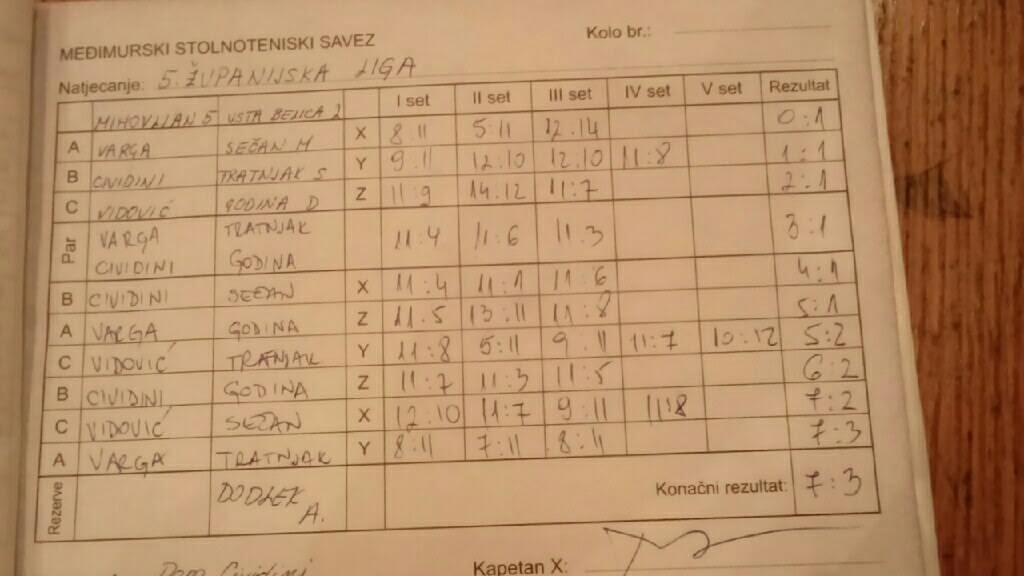 MEĐIMURSKI STOLNOTENISKI SAVEZ Kolo br.:
Natjecanje: 5. ŽUPANIJSKA LIGA
I set II set III set IV set V set Rezultat
MIHOVLJAN 5 USTA BELICA 2
A VARGA SEČAN M X 8:11 5:11 12:14 0:1
B CIVIDINI TRATNJAK S Y 9:11 12:10 12:10 11:8 1:1
C VIDOVIĆ GODINA D Z 11:9 14:12 11:7 2:1
Par VARGA TRATNJAK 11:4 11:6 11:3 3:1
CIVIDINI GODINA
B CIVIDINI SEČAN X 11:4 11:1 11:6 4:1
A VARGA GODINA Z 11:5 13:11 11:8 5:1
C VIDOVIĆ TRATNJAK Y 11:8 5:11 9:11 11:7 10:12 5:2
B CIVIDINI GODINA Z 11:7 11:3 11:5 6:2
C VIDOVIĆ SEČAN X 12:10 11:7 9:11 11:8 7:2
A VARGA TRATNJAK Y 8:11 7:11 8:11 7:3
Rezerve DODLEK A. Konačni rezultat: 7:3
Kapetan X:
Cividini